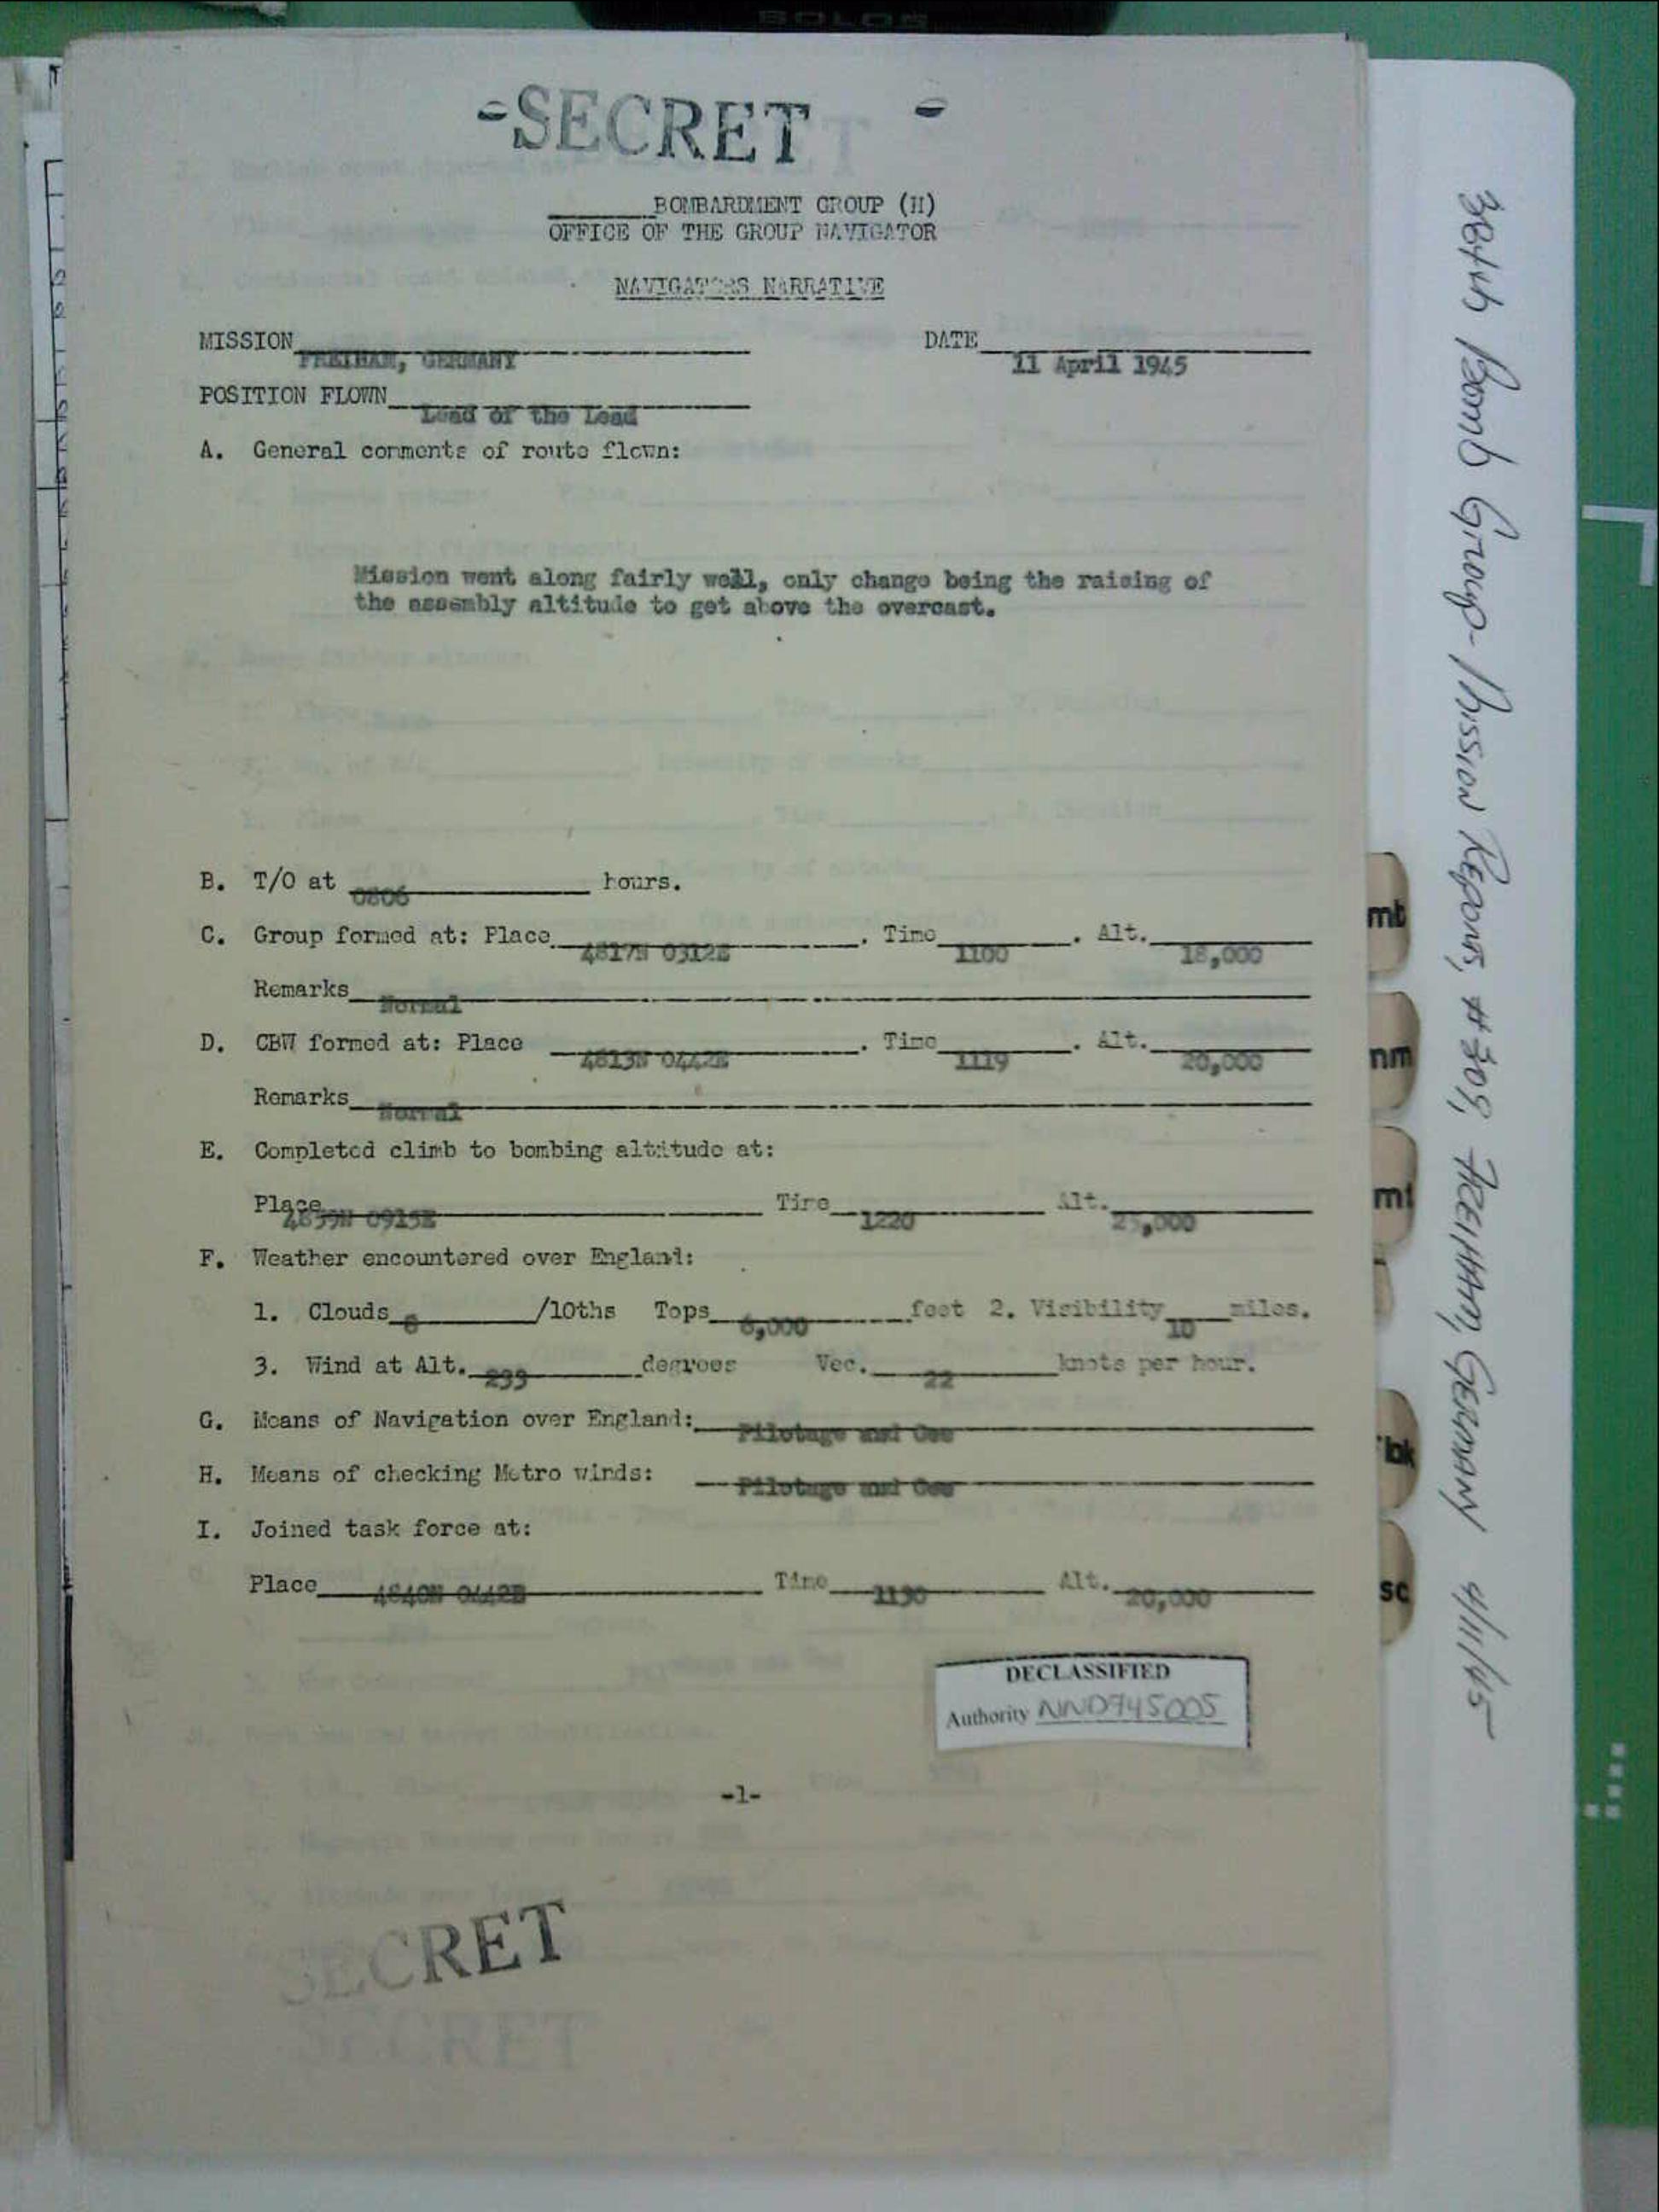 BOLOS
-SECRET -
BOMBARDMENT GROUP (H)
OFFICE OF THE GROUP NAVIGATOR
NAVIGATORS NARRATIVE
MISSION FREIHAM, GERMANY DATE 11 April 1945
POSITION FLOWN Lead of the Lead
A. General comments of route flown:
Mission went along fairly well, only change being the raising of
the assembly altitude to get above the overcast.
B. T/O at 0806 hours.
C. Group formed at: Place 4817N 0312E . Time 1100 . Alt. 18,000
Remarks Normal
D. CBW formed at: Place 4813N 0442E . Time 1119 . Alt. 20,000
Remarks Normal
E. Completed climb to bombing altitude at:
Place 4839N 0915E Time 1220 Alt. 25,000
F. Weather encountered over England:
1. Clouds /10ths Tops 6,000 feet 2. Visibility 10 miles.
3. Wind at Alt. degrees Vec. 22 knots per hour.
G. Means of Navigation over England: Pilotage and Gee
H. Means of checking Metro winds: Pilotage and Gee
I. Joined task force at:
Place 4840N 0442E Time 1130 Alt. 20,000
DECLASSIFIED
Authority NND745005
-1-
SECRET
SECRET
384th Bomb Group - Mission Report, #309, FREIHAM, GERMANY 4/11/45
mb
nm
mf
bk
sc